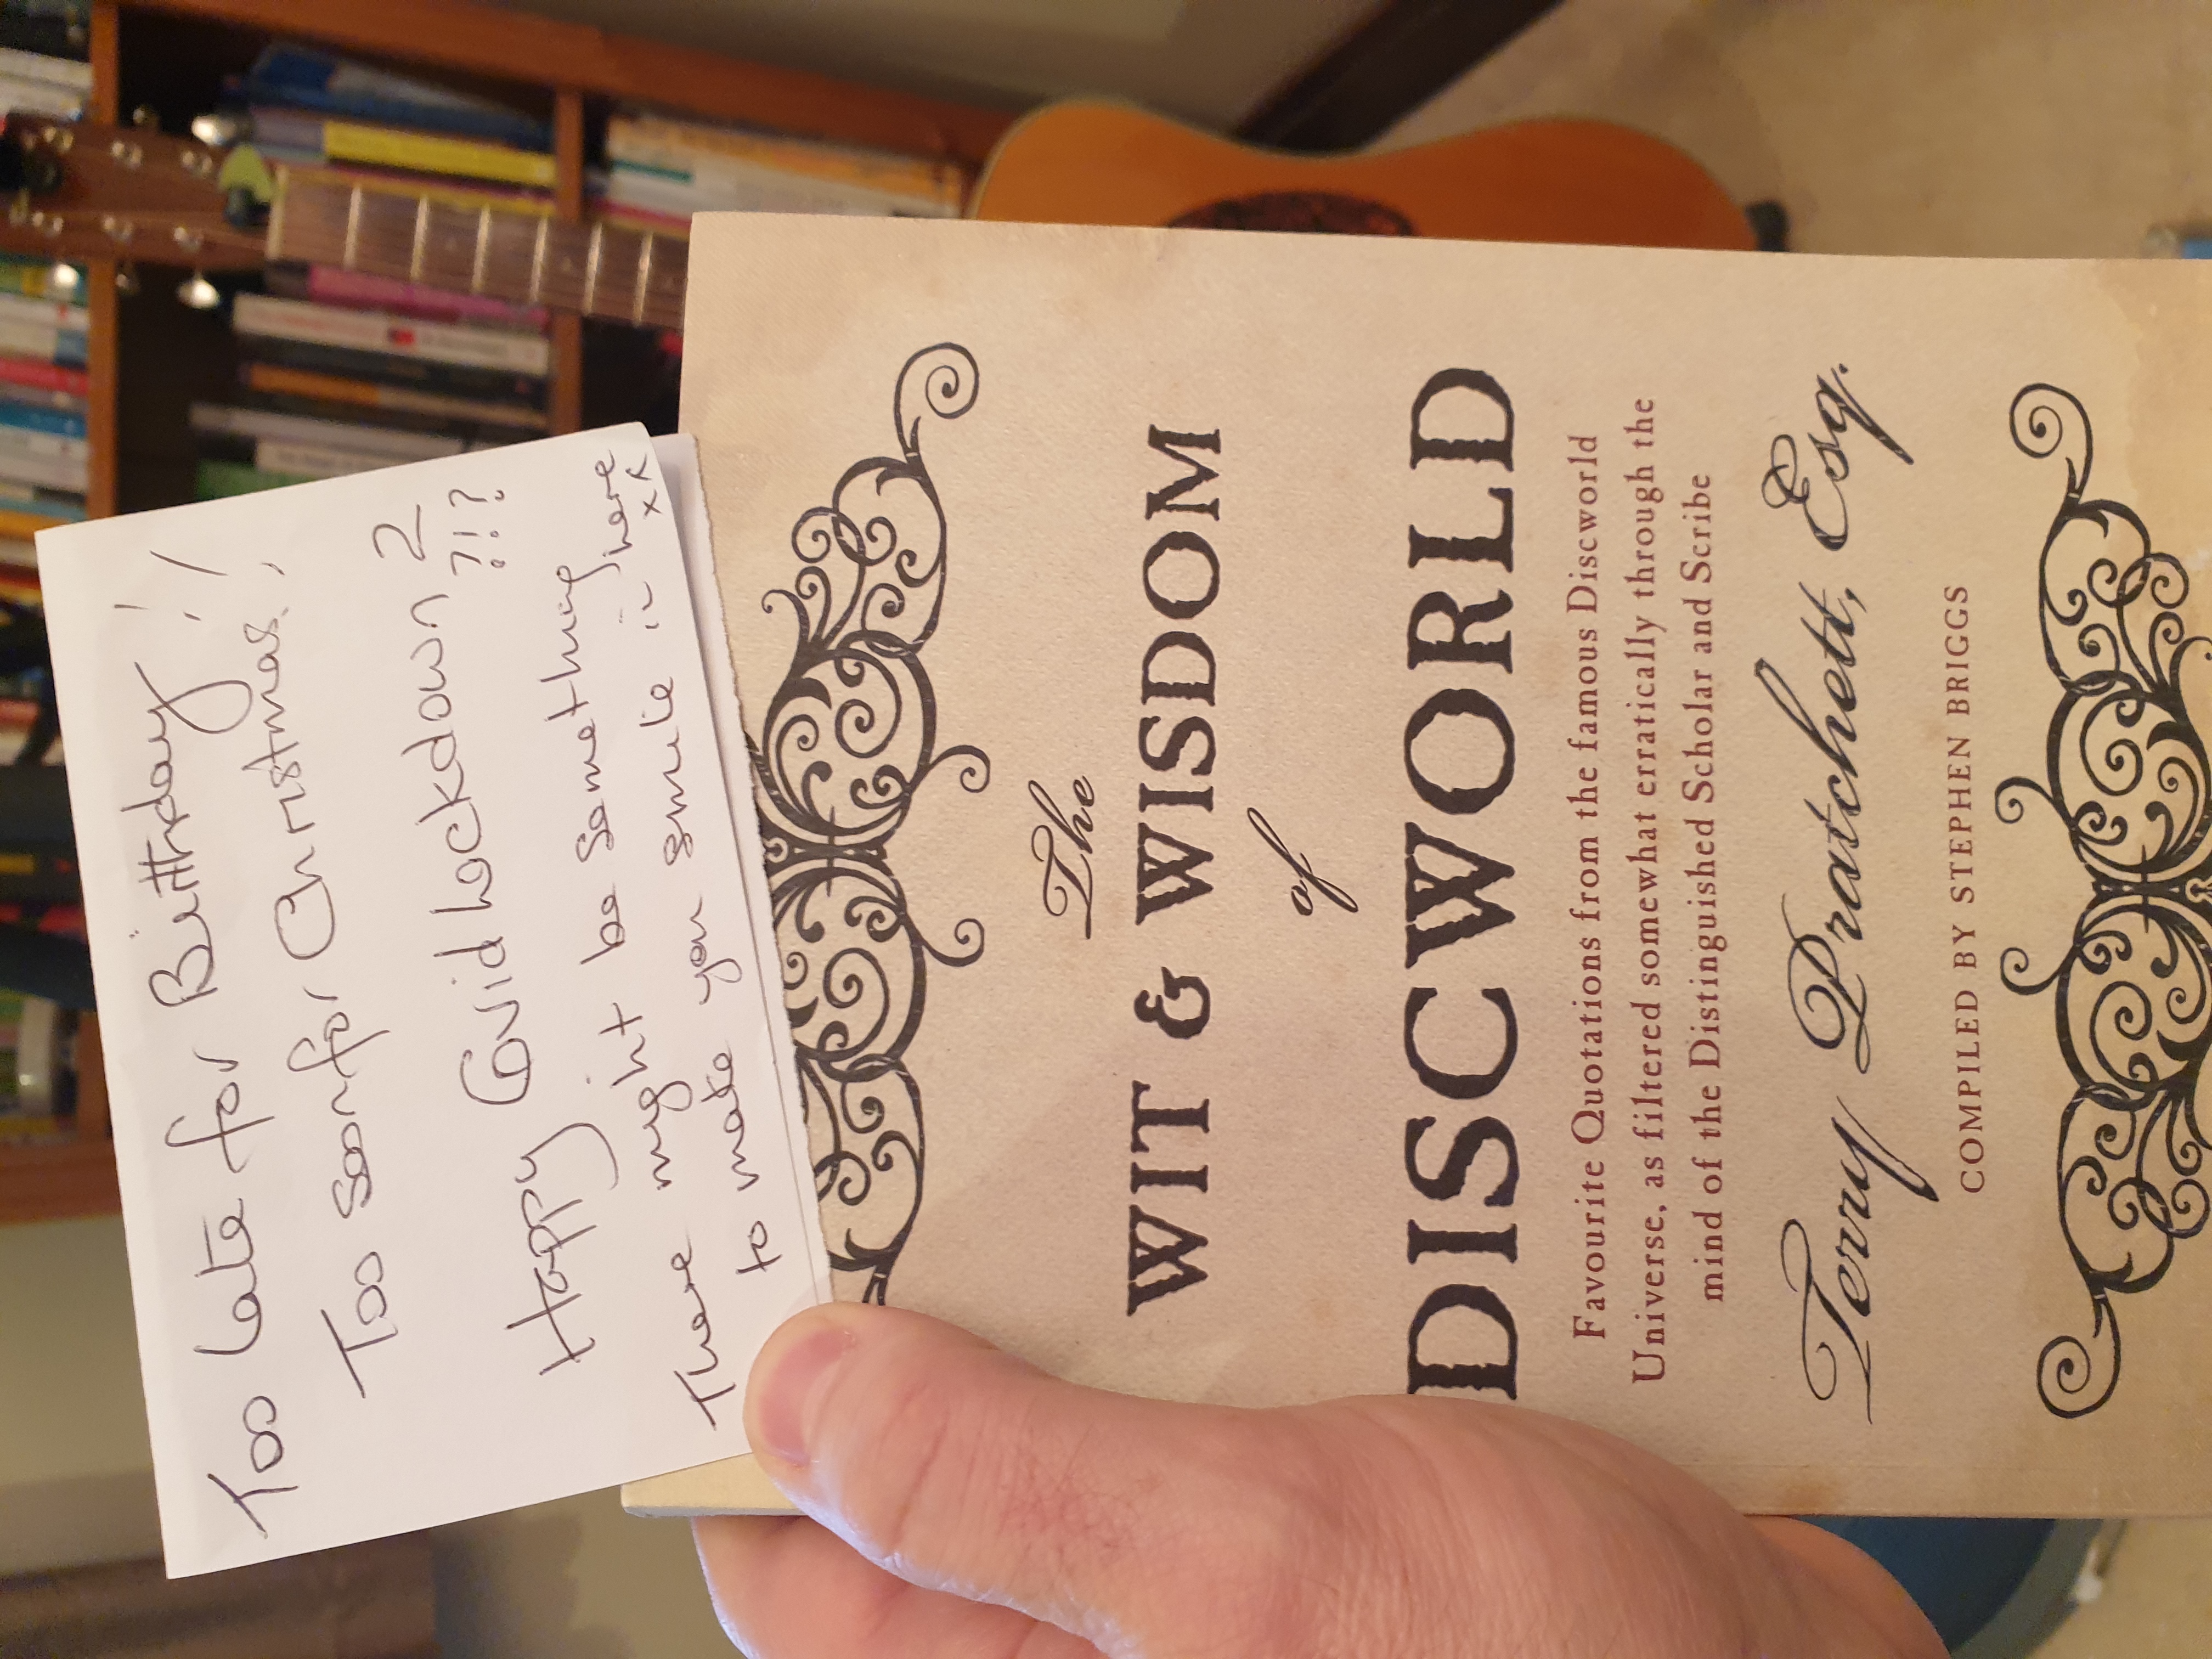 Too late for Birthday!
Too soon for Christmas!
Happy Covid Lockdown 2
?!?
There might be something here
to make you smile in xx
The
WIT & WISDOM
of
DISCWORLD
Favourite Quotations from the famous Discworld
Universe, as filtered somewhat erratically through the
mind of the Distinguished Scholar and Scribe
Terry Pratchett, Esq.
COMPILED BY STEPHEN BRIGGS